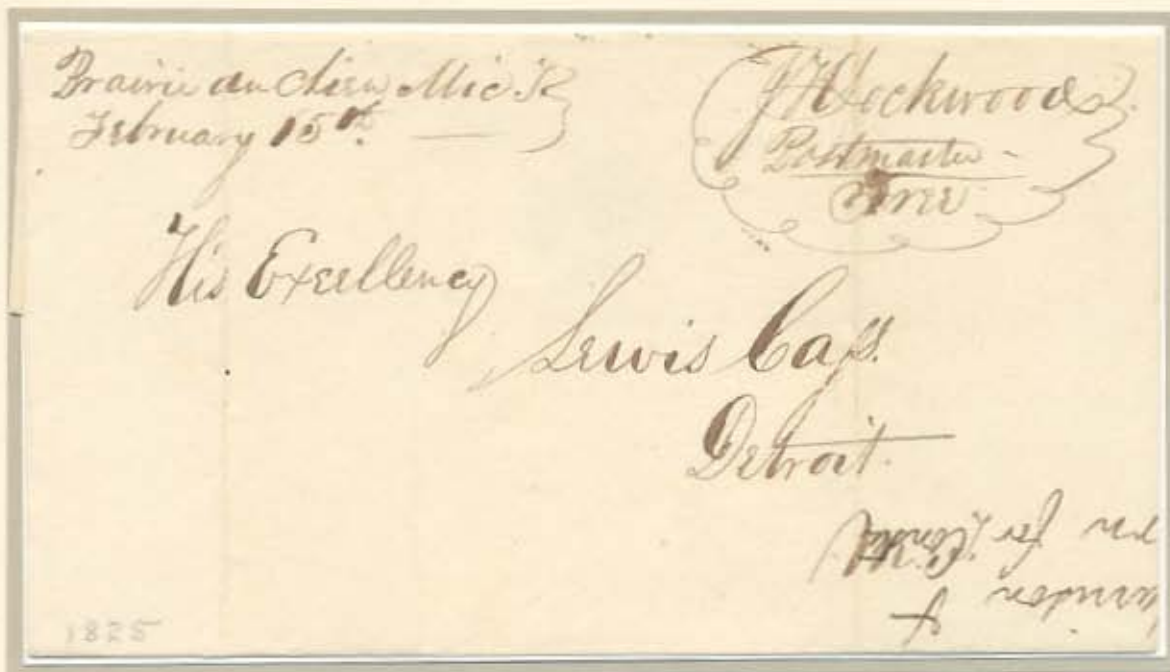 Prairie du Chien Mic. T
February 15th
J H Lockwood
Postmaster
Free
His Excellency
Lewis Cass.
Detroit.
for
1825